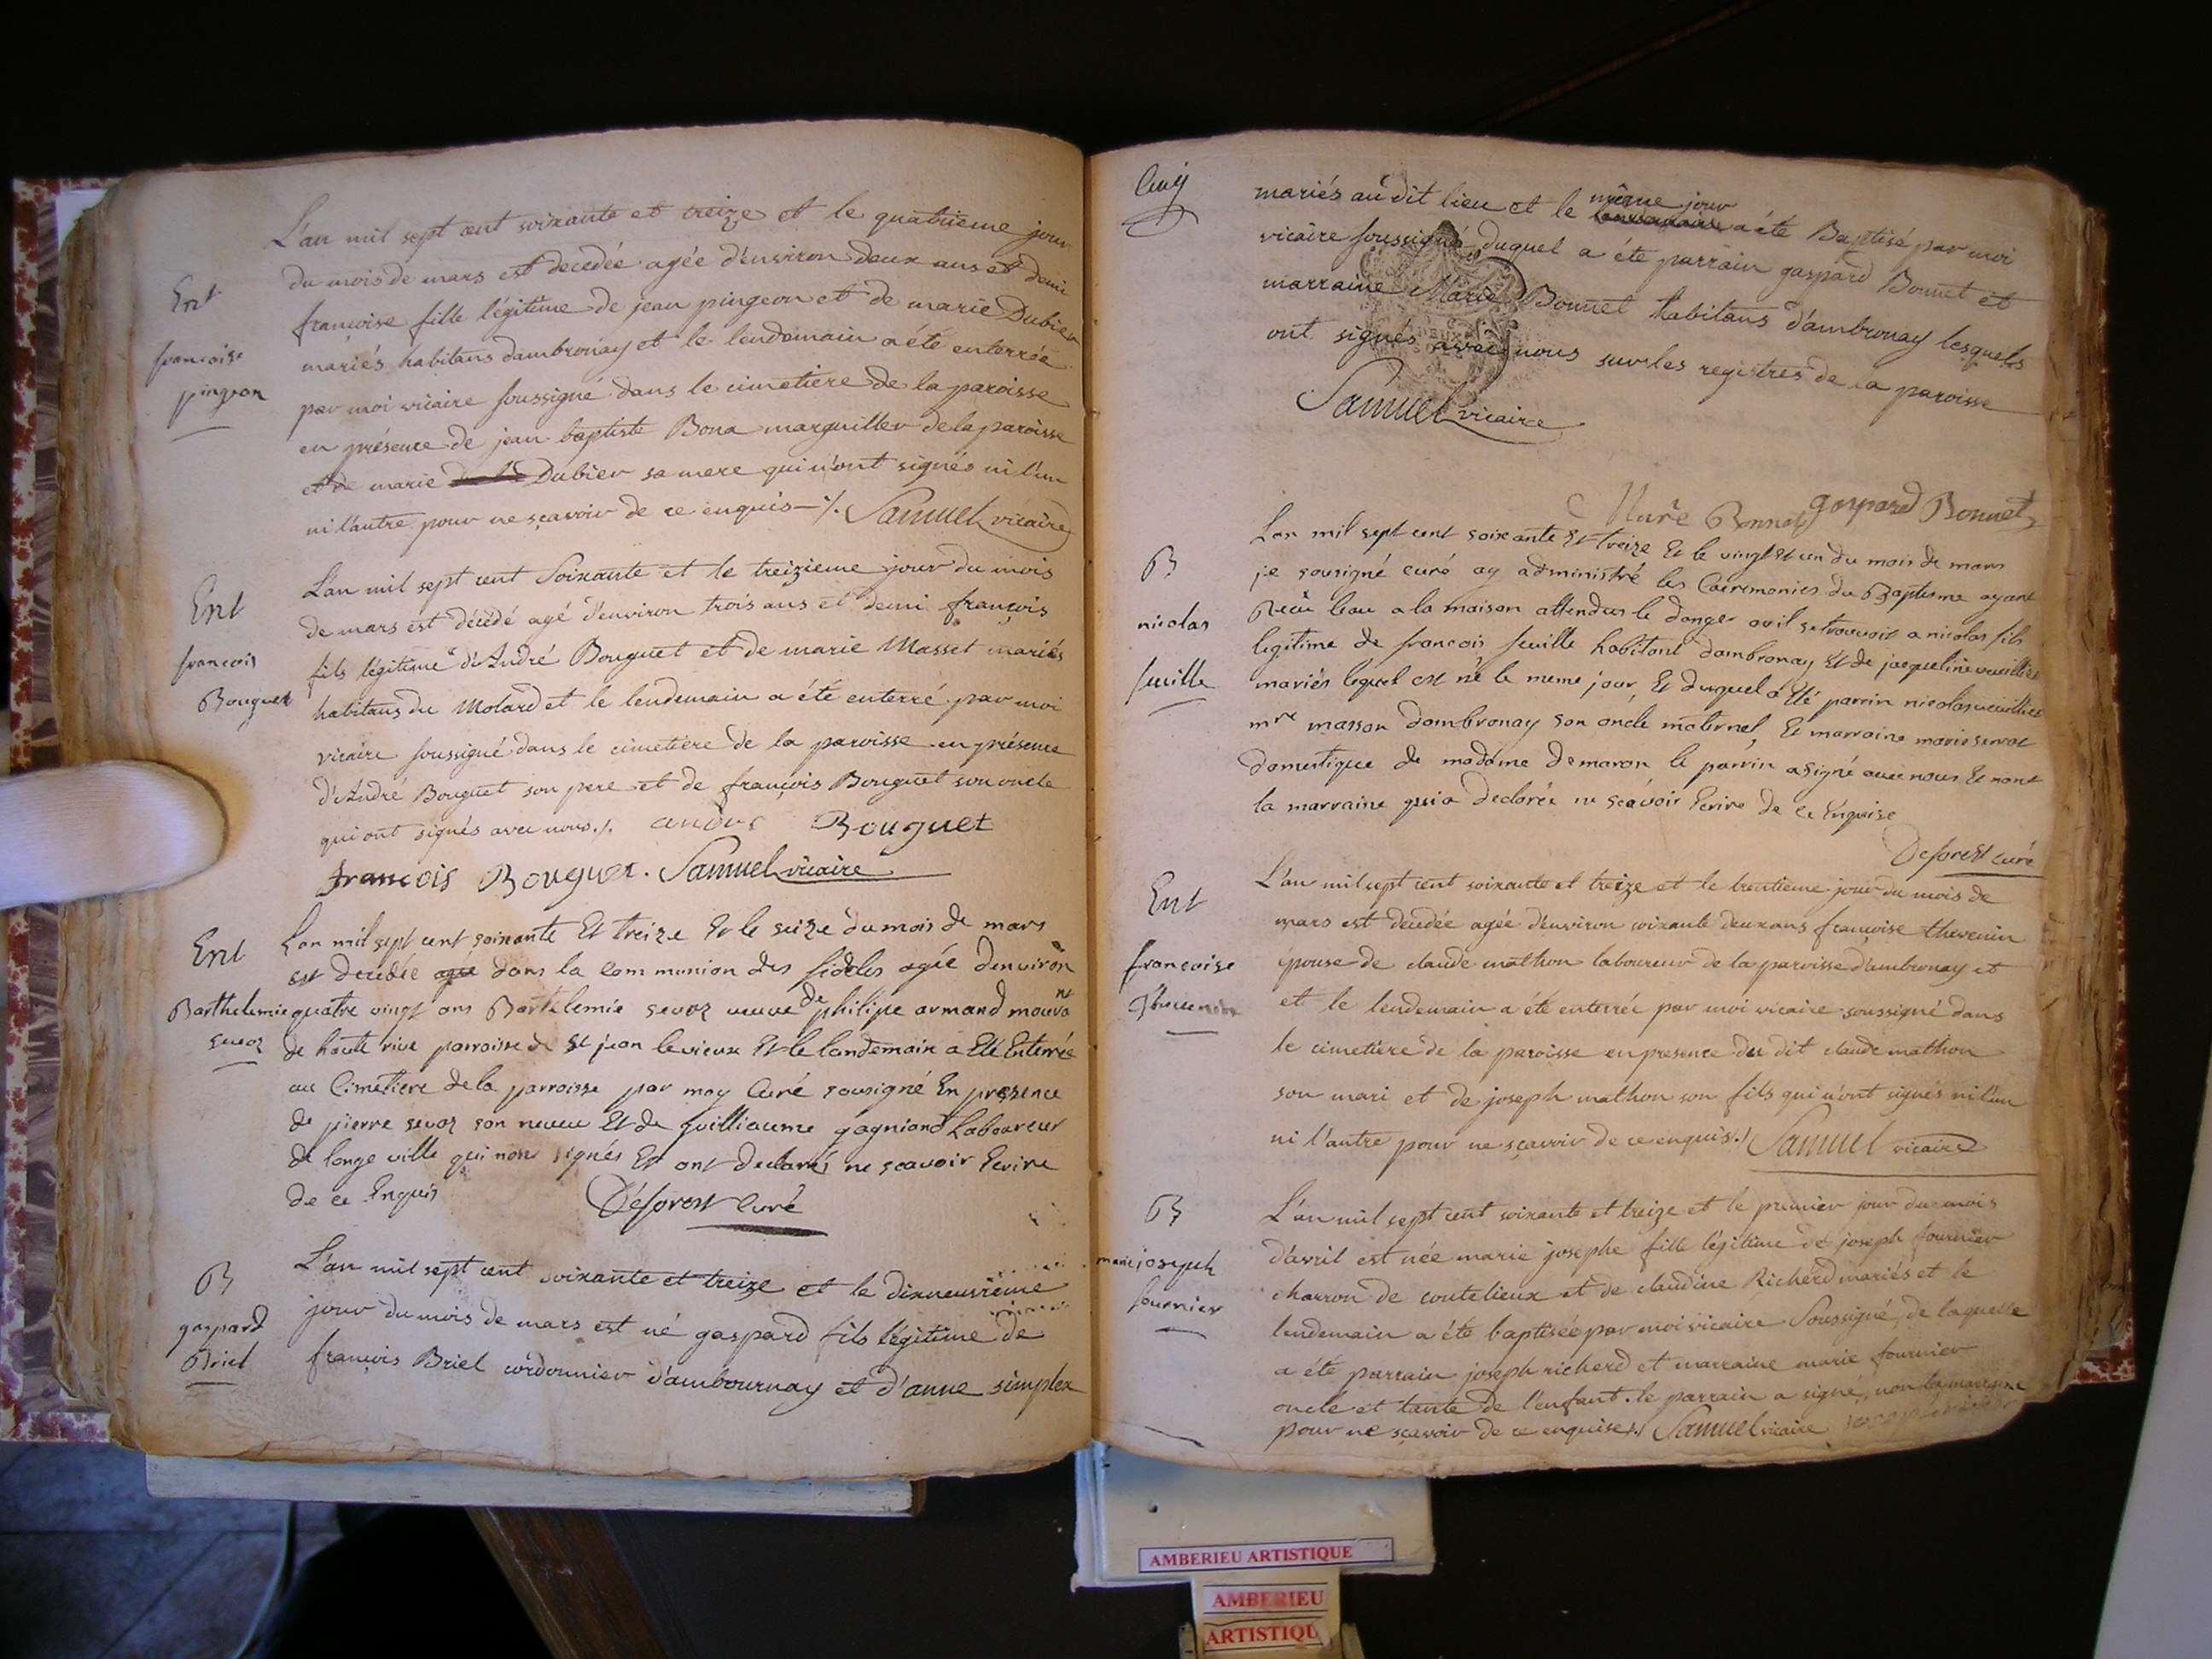 L'an mil sept cent soixante et treize et le quatrieme jour
du mois de mars est decedée agée d'environ deux ans et demi
Ent
françoise fille légitime de jean pingeon et de marie Dubier
francoise
pingeon
mariés habitans dambronay et le lendemain a été enterrée
par moi vicaire soussigné dans le cimetiere de la paroisse
en présence de jean baptiste Bona marguiller de la paroisse
et de marie Dubier sa mere qui n'ont signés ni l'un
ni l'autre pour ne sçavoir de ce enquis ./. Samuel vicaire
L'an mil sept cent Soixante et le treizieme jour du mois
Ent
de mars est décédé agé d'environ trois ans et demi françois
francois
Bouguet
fils légitime d'André Bouguet et de marie Masset mariés
habitans du Molard et le lendemain a été enterré par moi
vicaire soussigné dans le cimetiere de la paroisse en présence
d'André Bouguet son pere et de françois Bouguet son oncle
qui ont signés avec nous ./. andre Bouguet
francois Bouguet. Samuel vicaire
Ent
Lan mil sept cent soixante Et treize Et le seize du mois de mars
est decedée agée dans la Communion des fideles agée denviron
Barthelemie
sevoz
quatre vingt ans Bartelemie sevoz veuve de philipe armand
de haute rive parroisse de St jean levieux Et le landemain a Eté Enterrée
au Cimetiere de la parroisse par moy Curé sousigné En presence
de pierre sevoz son neveu Et de guilliaume gagniard Laboureur
de longe ville qui nont signés Et ont declarés ne scavoir Ecrire
de ce Enquis Deforest Curé
B
gaspard
Briel
L'an mil sept cent soixante et treize et le dixneuvieme
jour du mois de mars est né gaspard fils légitime de
françois Briel cordonnier d'ambournay et d'anne simplex
mariés au dit lieu et le même jour a été Baptisé par moi
vicaire soussigné, duquel a été parrain gaspard Bonnet et
marraine Marie Bonnet habitans d'ambronay lesquels
ont signés avec nous sur les registres de la paroisse
Samuel vicaire
Marie Bonnet gaspard Bonnet
B
nicolas
feuille
Lan mil sept cent soixante Et treize Et le vingt et un du mois de mars
je sousigné curé ay administré les Caeremonies du Baptesme ayant
Recu leau a la maison attendus le danger ou il se trouvoit a nicolas fils
legitime de francois feuille habitant dambronay Et de jacqueline
mariés lequel est né le meme jour, Et duquel a Eté parrin nicolas
mre masson dambronay son oncle maternel, Et marraine marie servat
domestique de madame demaron le parrin a signé avec nous Et nont
la marraine qui a declarée ne scavoir Ecrire de ce Enquise
Deforest curé
Ent
francoise
thevenin
L'an mil sept cent soixante et treize et le trentieme jour du mois de
mars est decedée agée d'environ soixante deux ans françoise thevenin
épouse de claude mathon laboureur de la paroisse d'ambronay et
et le lendemain a été enterrée par moi vicaire soussigné dans
le cimetiere de la paroisse en presence du dit claude mathon
son mari et de joseph mathon son fils qui n'ont signés ni l'un
ni l'autre pour ne sçavoir de ce enquis ./. Samuel vicaire
B
marie joseph
fournier
L'an mil sept cent soixante et treize et le premier jour du mois
d'avril est née marie josephe fille légitime de joseph fournier
charron de coutelieux et de claudine Richerd mariés et le
lendemain a été baptisée par moi vicaire Soussigné, de laquelle
a été parrain joseph richerd et marraine marie fournier
oncle et tante de l'enfant. le parrain a signé, non la marraine
pour ne sçavoir de ce enquise ./. Samuel vicaire
AMBERIEU ARTISTIQUE
AMBERIEU
ARTISTIQU